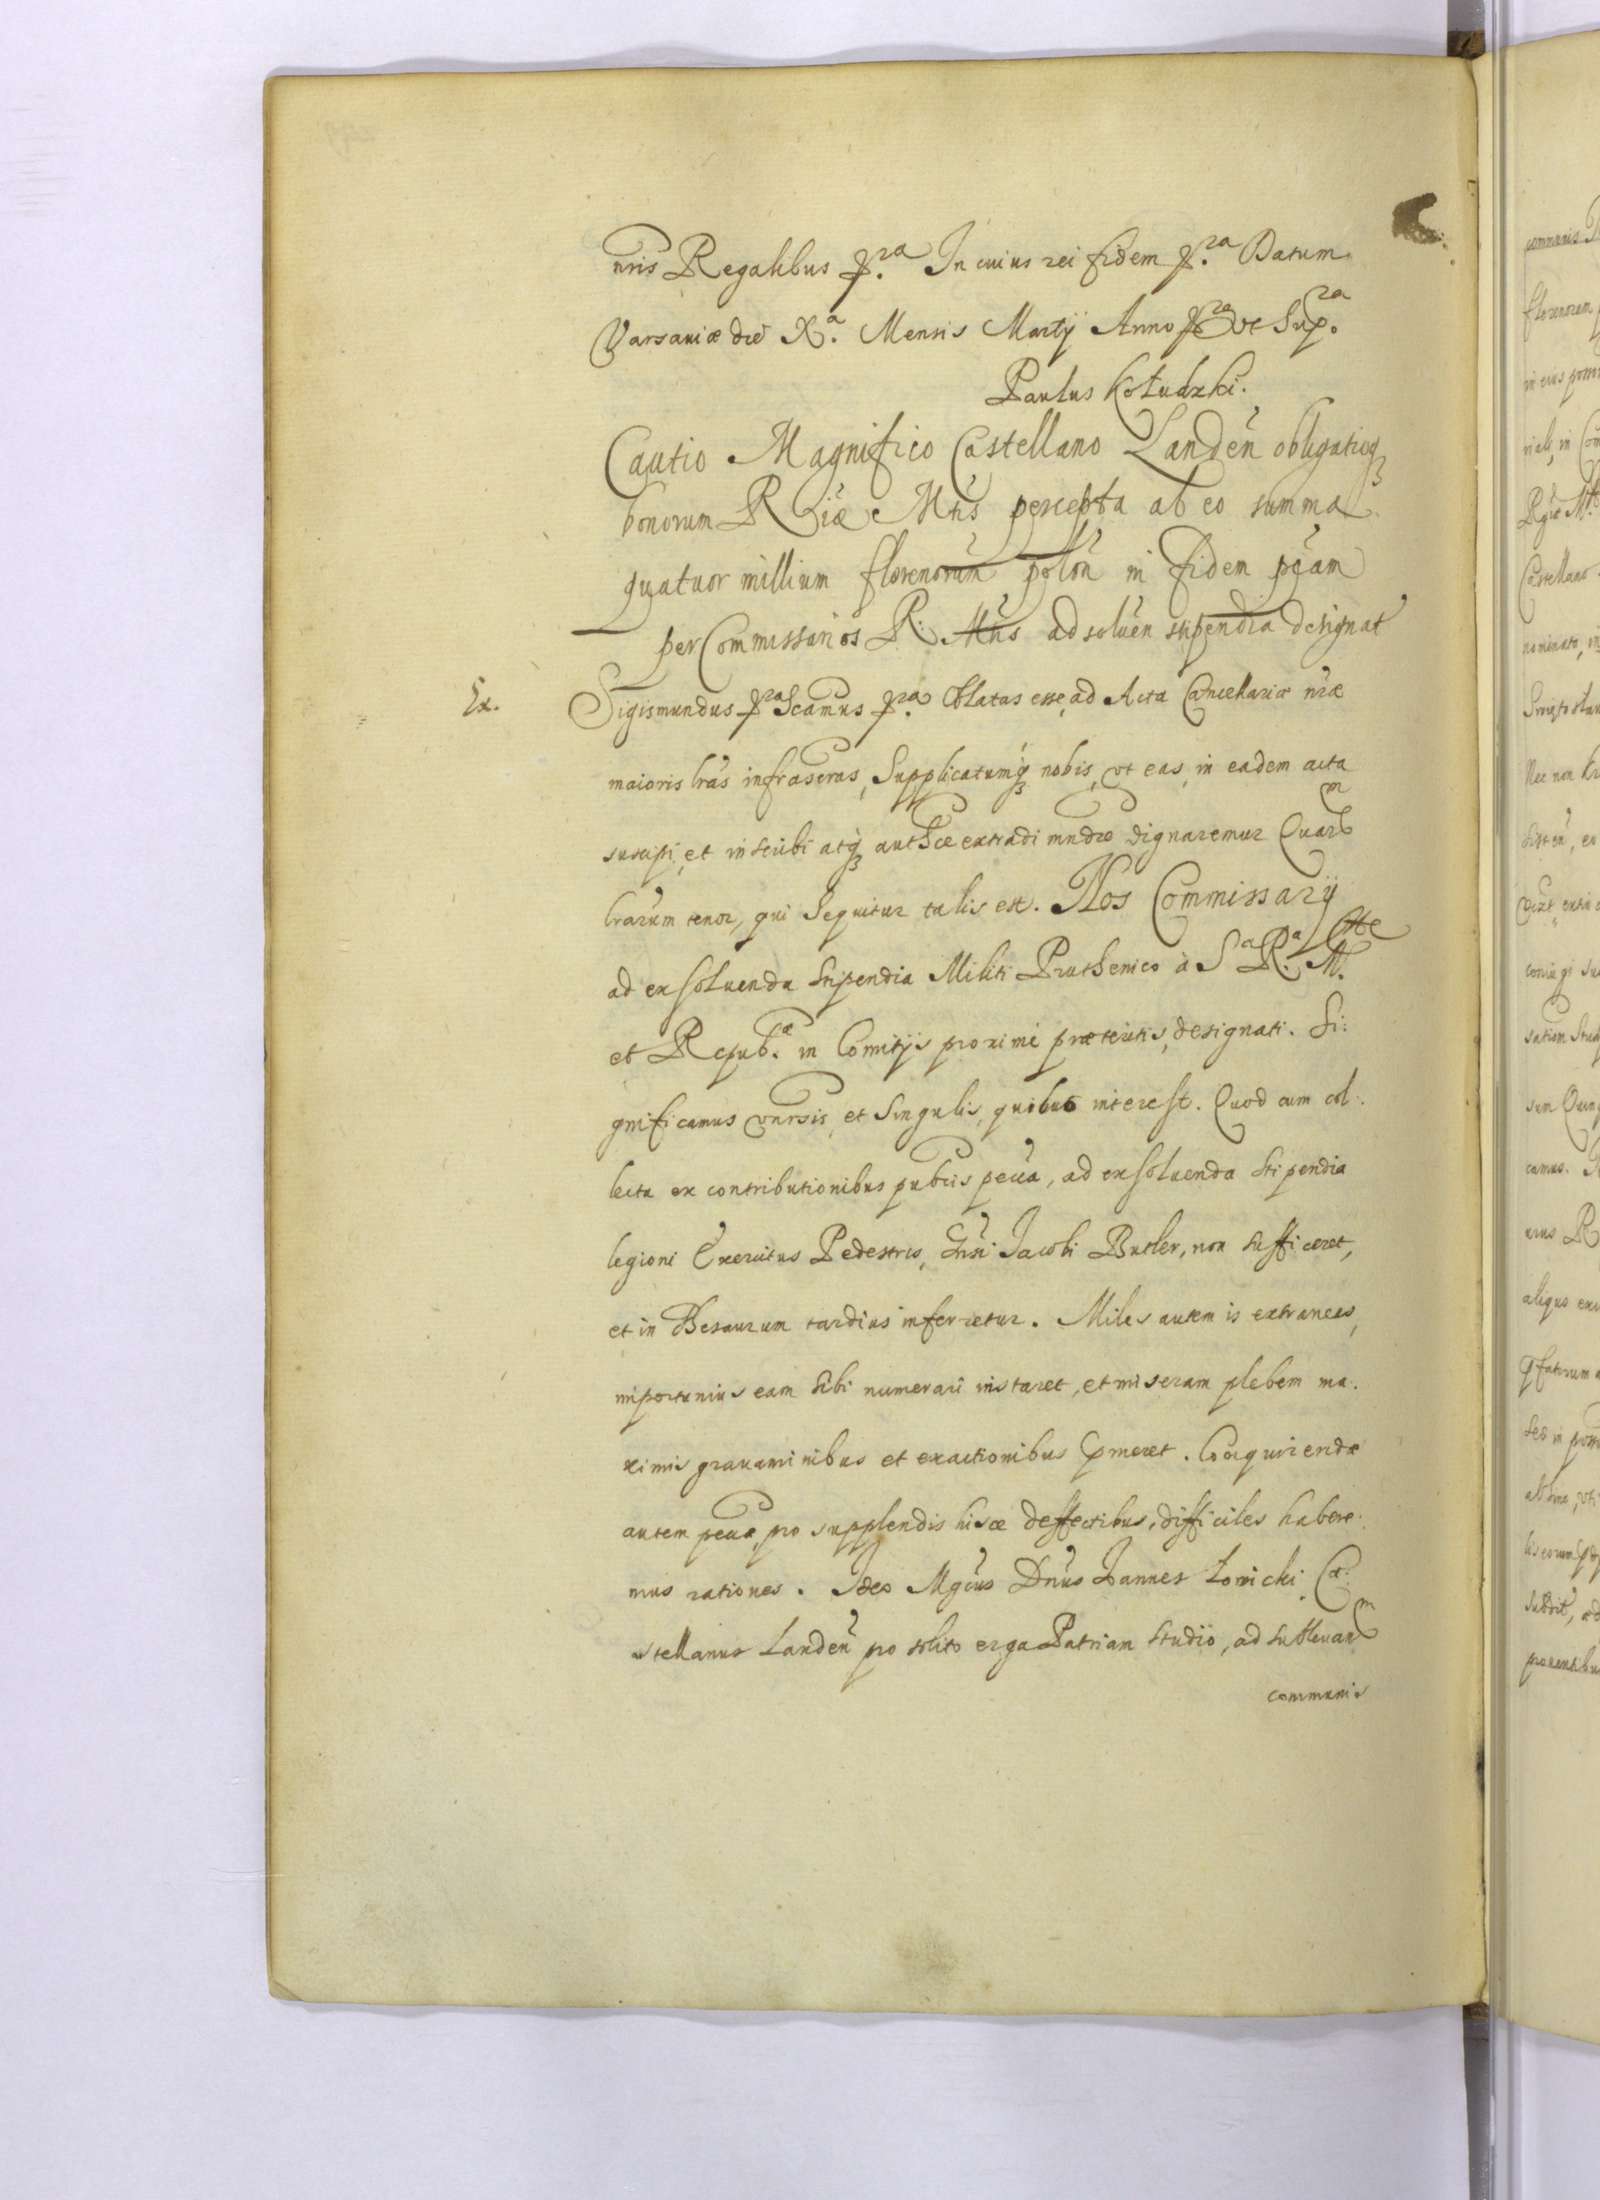 nris Regalibus p.ra In cuius rei fidem p.ra Datum
Varsaviæ die X.a Mensis Martij Anno p.ra ut Sup.ra
Paulus Kołudzki.
Cautio Magnifico Castellano Landen obligatioq
bonorum R giæ Mtis percepta ab eo summa
quatuor millium florenorum polon in fidem pcam
per Commissarios R. Mtis ad soluen stipendia designat
Ex.
Sigismundus p.ra Scamus p.ra Oblatas esse, ad Acta Cancellariæ nræ
maioris lras infrascras, Supplicatumq nobis, ut eas, in eadem acta
suscipi, et inscribi atq authce extradi mndre dignaremur Quarum
lrarum tenor, qui sequitur talis est. Nos Commissarij
ad exsoluenda stipendia Militi Pruthenico à S.a R.a Mtte
et Repub.æ in Comitijs proximè præteritis, designati. Si:
gnificamus vnrsis, et singulis, quibus interest. Quod cum col:
lecta ex contributionibus pubcis pecia, ad exsoluenda stipendia
legioni Exercitus Pedestris, Gnsi Jacobi Butler, non sufficeret,
et in Thesaurum tardius inferretur. Miles autem is extraneus,
importunius eam sibi numerari instaret, et miseram plebem ma:
ximis grauaminibus et exactionibus premeret. Conquirendæ
autem peciæ, pro supplendis hisce deffectibus, difficiles habere:
mus rationes. Ideo Mgcus Dnus Joannes Łowicki Ca:
stellanus Landen pro solito erga Patriam studio, ad subleuandm
communis